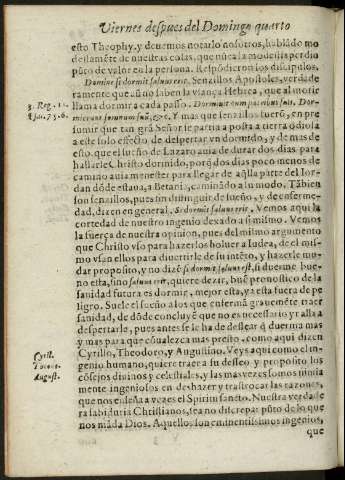 Viernes despues del Domingo quarto
esto Theophy. y deuemos notarlo nosotros, hablãdo mo
destamẽte de nuestras cosas, que nũca la modestia perdio
pũto de valor en la persona. Respõdierõ los discipulos.
Domine si dormit saluus erit. Senzillos Apostoles, verdade
ramente que aũ no saben la vsança Hebrea, que al morir
3. Reg. 11.
llama dormir a cada passo. Dormiuit cum patribus suis. Dor-
mierunt somnum suũ, &c. Y mas que senzillos fuerõ, en pre
sumir que tan grã Señor se partia a posta a tierra q̃ odiosa
a este solo efecto de despertar vn dormido, y de mas de
esto, que el sueño de Lazaro auia de durar dos dias para
hallarle Christo dormido, porq̃ dos dias poco menos de
camino auia menester para llegar de aq̃lla parte del Ior-
dan dõde estaua, a Betania, caminãdo a su modo. Tãbien
son senzillos, pues sin distinguir de sueño, y de enferme-
dad, dizen en general, Si dormit saluus erit. Vemos aqui la
cortedad de nuestro ingenio dexado a si mismo. Vemos
la fuerça de nuestra opinion, pues del mismo argumento
que Christo vso para hazerlos boluer a Iudea, de el mis-
mo vsan ellos para diuertirle de su intẽto, y hazerle mu-
dar proposito, y no dizẽ si dormit saluus est, si duerme bue-
no esta, sino saluus erit, quiere dezir, buẽ pronostico de la
sanidad futura es dormir, mejor esta, y a esta fuera de pe
ligro. Suele el sueño a los que enfermã grauemẽte traer
sanidad, de dõde concluyẽ que no es necessario yr alla a
despertarle, pues antes se le ha de dessear q̃ duerma mas
y mas para que cõualezca mas presto, como aqui dizen
Cyril.
Cyrillo, Theodoro, y Augustino. Veys aqui como el in-
Theodo.
genio humano, quiere traer a su desseo y proposito los
August.
cõsejos diuinos y celestiales, y las mas vezes somos nimia
mente ingeniosos en deshazer y trastrocar las razones,
que nos enseña a vezes el Spiritu sancto. Nuestra verdade
ra sabiduria Christianos, sea no discrepar pũto de lo que
nos mãda Dios. Aquellos son eminentissimos ingenios,
que